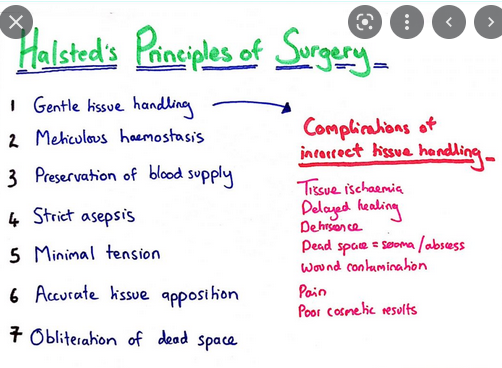 Halsted's Principles of Surgery
1 Gentle tissue handling
2 Meticulous haemostasis
3 Preservation of blood supply
4 Strict asepsis
5 Minimal tension
6 Accurate tissue apposition
7 Obliteration of dead space
Complications of
incorrect tissue handling
Tissue ischaemia
Delayed healing
Dehisence
Dead space = seroma / abscess
Wound contamination
Pain
Poor cosmetic results